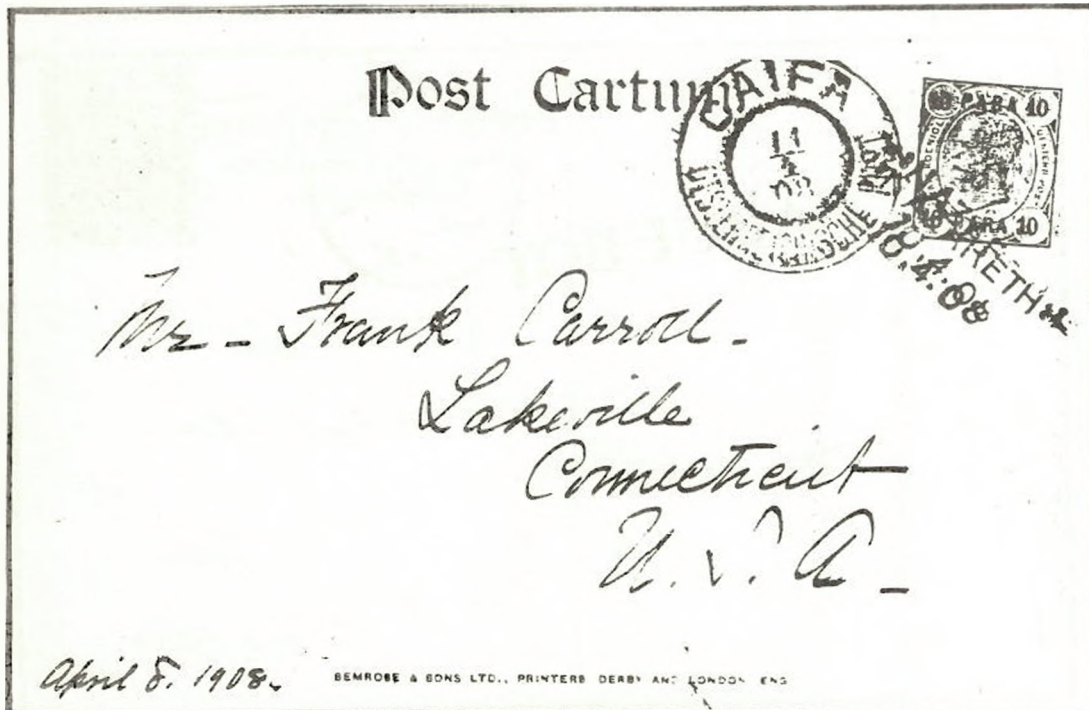 Post Cartum
CAIFA
11
4
08
OESTERREICHISCHE POST
10 PARA 10
10 PARA 10
8.4.08
Mr - Frank Carroll -
Lakeville
Connecticut
U. S. A -
April 8. 1908.
BEMROSE & SONS LTD., PRINTERS DERBY AND LONDON ENG